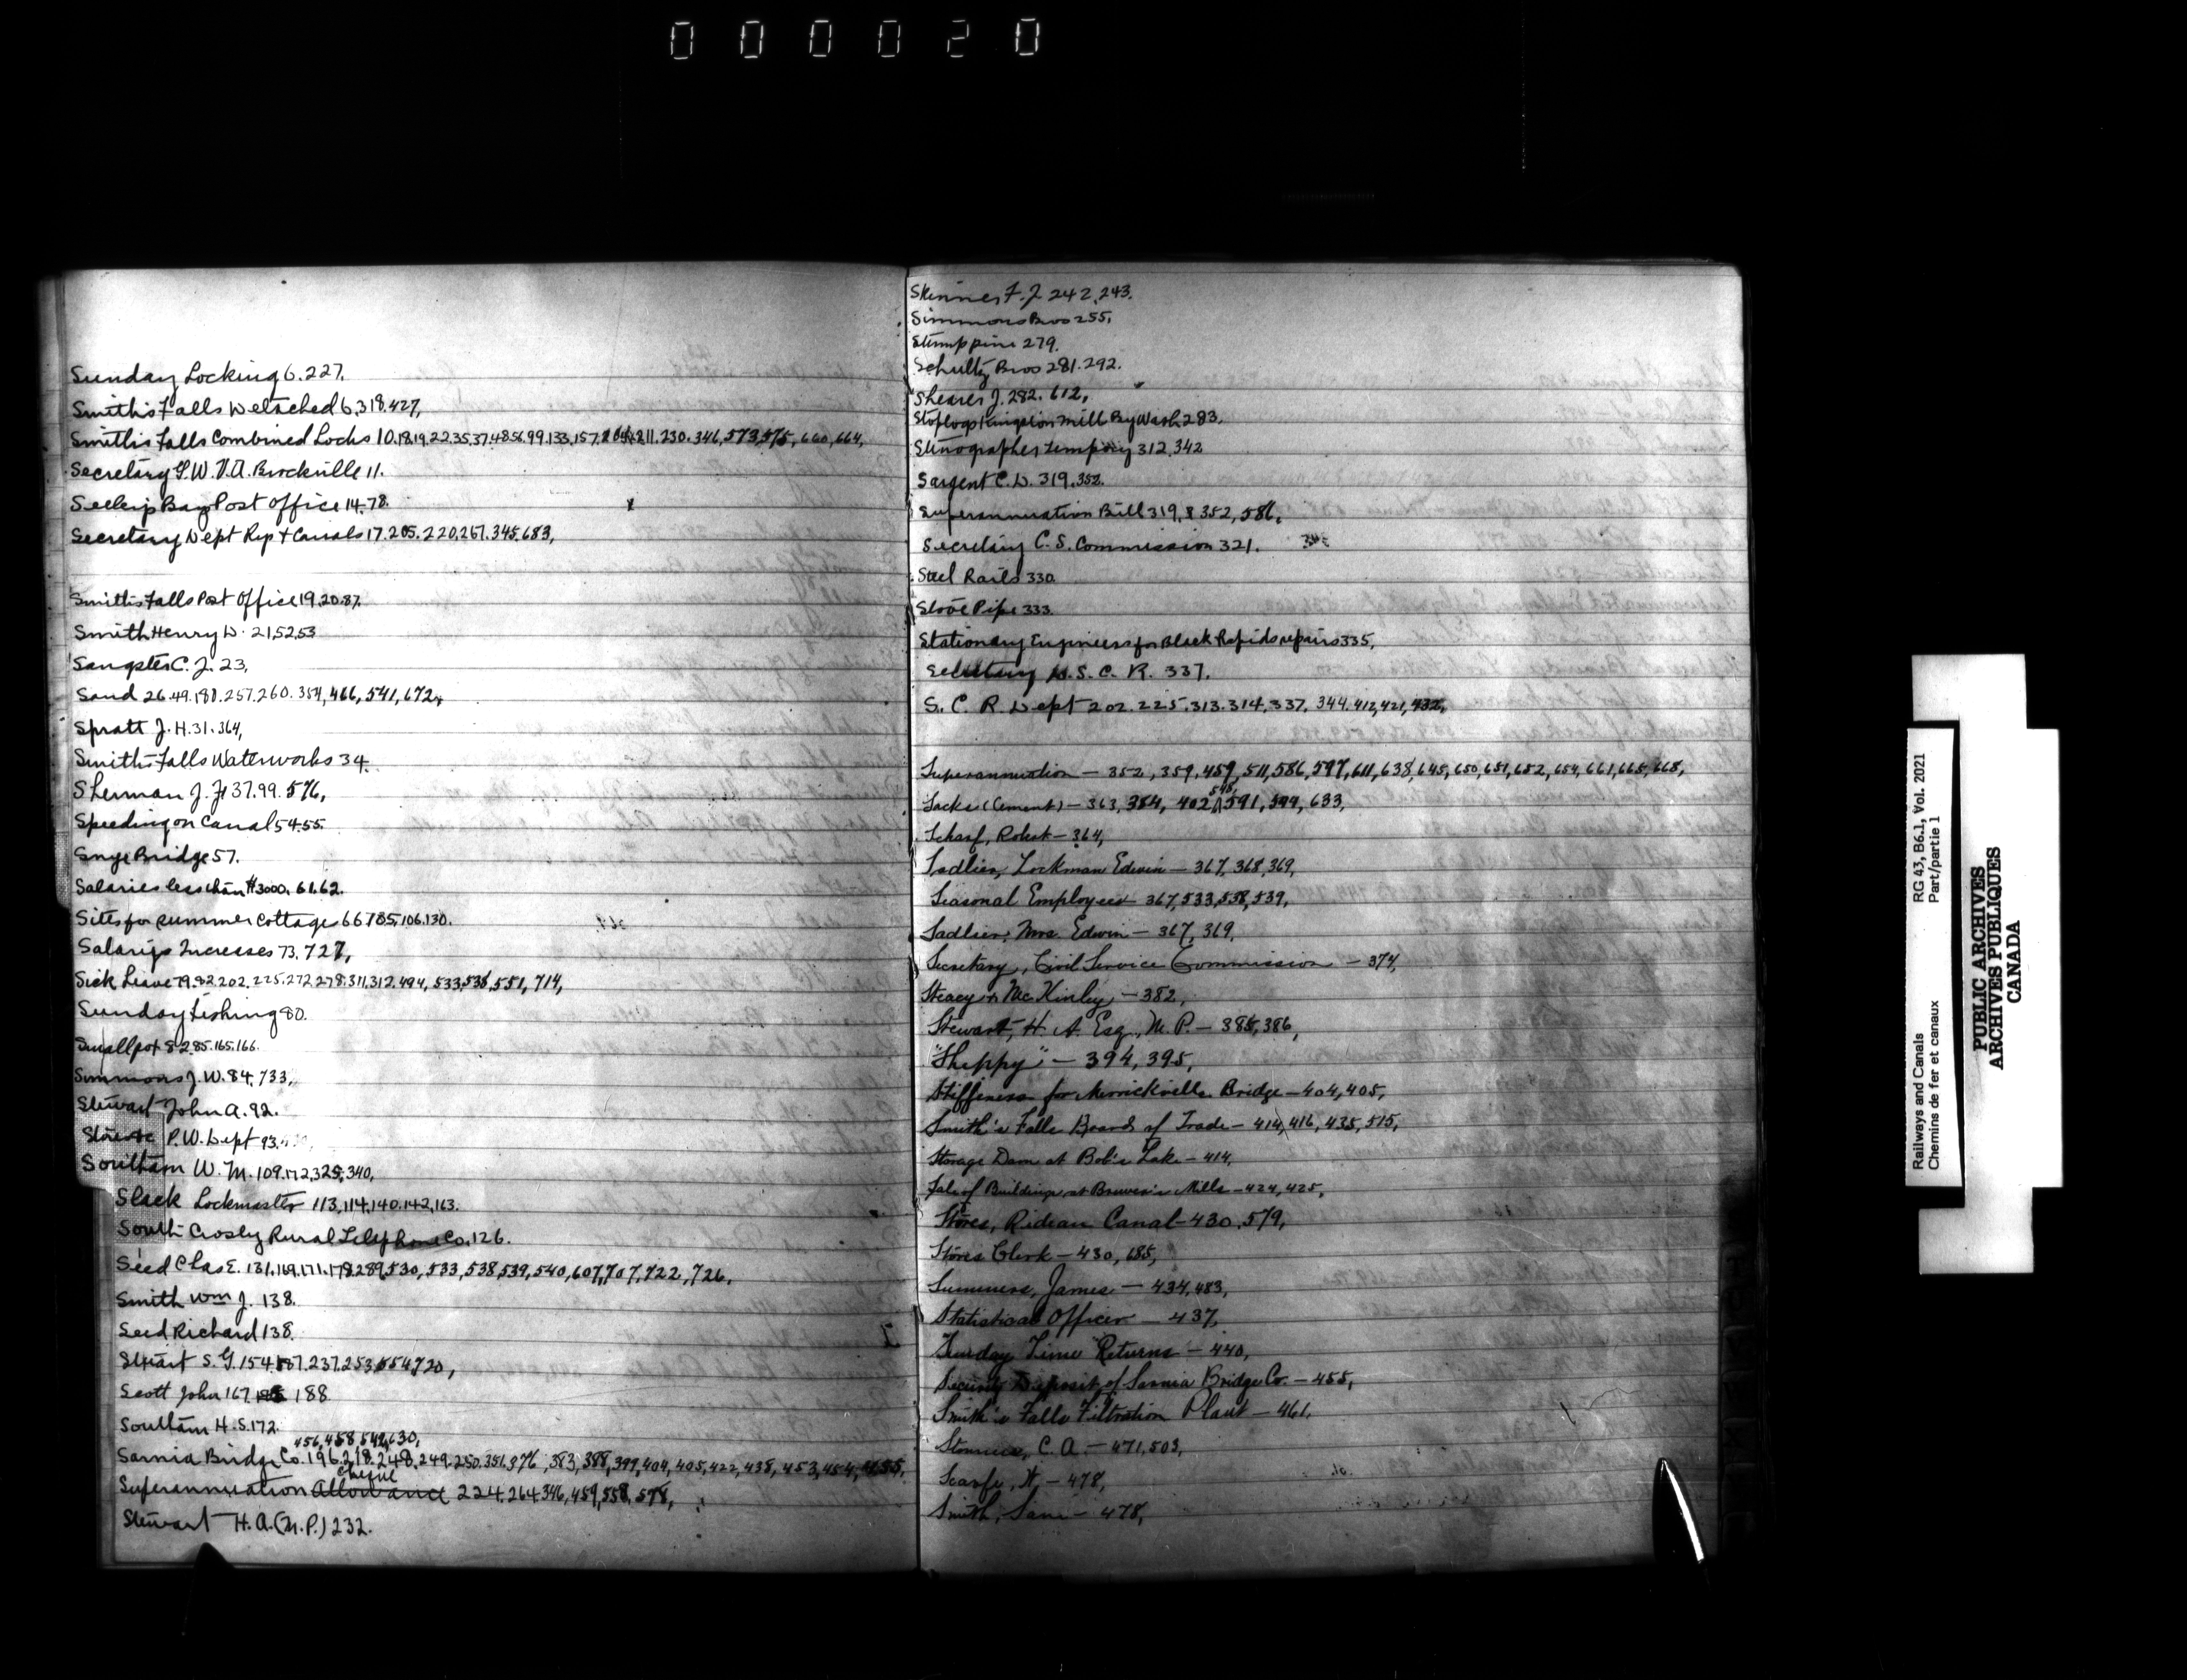 000020
Sunday Locking 6.227.
Smiths Falls Detached 6.318.427,
Smiths Falls Combined Locks 10.18.19.22.35.37.48.56.99.133.157. 211.230.346,573,575,660,664,
Secretary G.W.V.A. Brockville 11.
Seeleys Bay Post Office 14.78.
Secretary Dept Rys + Canals 17.205.220.267.345,683,
Smiths Falls Post Office 19.20.87.
Smith Henry D. 21,52,53
Sangster C. J. 23,
Sand 26.49.180.257.260.354,466,541,672,
Spratt J. H. 31.364,
Smiths Falls Waterworks 34.
Sherman J. F. 37.99.576,
Speeding on Canal 54.55.
Snye Bridge 57.
Salaries less than $3000. 61.62.
Sites for summer cottages 66 78 85.106.130.
Salarys Increases 73.727,
Sick Leave 79.92.202.225.272.278.311.312.494,533,538,551,714,
Sunday Fishing 80.
Smallpox 82.85.165.166.
Simmons J. W. 84,733,
Stewart John A. 92.
P. W. Dept 93.
Southam W. M. 109.172,325,340,
Slack Lockmaster 113,114.140.142,163.
South Crosby Rural Telephone Co. 126.
Seed Chas E. 131.169.171.178.289,530,533,538,539,540,607,707,722,726,
Smith Wm J. 138.
Seed Richard 138.
Stuart S. G. 154.187.237.253,554,720,
Scott John 167 188
Southam H. S. 172.
456,458,542,630,
Sarnia Bridge Co. 196.218.248.249.250.351.376,383,388,399,404,405,422,438,453,454,455,
cheque
Superannuation Allowance 224.264.346,459,558,578,
Stewart H. A. (M.P.) 232.
Skinner F. J 242.243.
Simmons Bros 255.
Stumppine 279.
Schultz Bros 281.292.
Shearer J. 282. 612,
Stoplogs Kingston Mill By Wash 283.
Stenographer Temporary 312.342
Sargent C. D. 319.352.
Superannuation Bill 319, 352,586,
Secretary C. S. Commission 321.
Steel Rails 330
Stove Pipe 333.
Stationary Engineers for Black Rapids repairs 335,
Secretary D. S. C. R. 337.
S. C. R. Dept 202.225.313.314,337, 344.412,421,432,
Superannuation — 352, 359, 459, 511, 586, 597, 611, 638, 645, 650, 651, 652, 654, 661, 665, 668,
Sacks (Cement) — 363, 384, 402, 548, 591, 599, 633,
Scharf, Robert — 364,
Sadlier, Lockman Edwin — 367, 368, 369,
Seasonal Employees 367, 533, 538, 539,
Sadlier, Mrs. Edwin — 367, 369,
Secretary, Civil Service Commission — 374,
Steacy & McKinley — 382,
Stewart, H. A. Esq., M. P. — 385, 386,
"Sheppy" — 394, 395,
Stiffeners for Merrickville Bridge — 404, 405,
Smith's Falls Board of Trade — 414, 416, 435, 515,
Storage Dam at Bob's Lake — 414,
Sale of Buildings at Brewer's Mills — 424, 425,
Stores, Rideau Canal — 430, 579,
Stores Clerk — 430, 685,
Summers, James — 434, 483,
Statistical Officer — 437,
Sunday Time Returns — 440,
Security Deposit of Sarnia Bridge Co. — 455,
Smith's Falls Filtration Plant — 461,
C. A. — 471, 503,
Scarfe, W. — 478,
Smith, Sam — 478,
Railways and Canals
Chemins de fer et canaux
RG 43, B6.1, Vol. 2021
Part/partie 1
PUBLIC ARCHIVES
ARCHIVES PUBLIQUES
CANADA